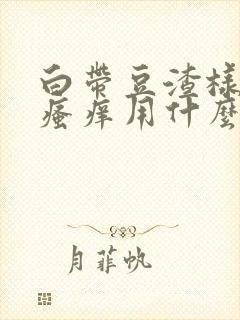 白带豆渣樣
瘙痒用什麽
月菲帆